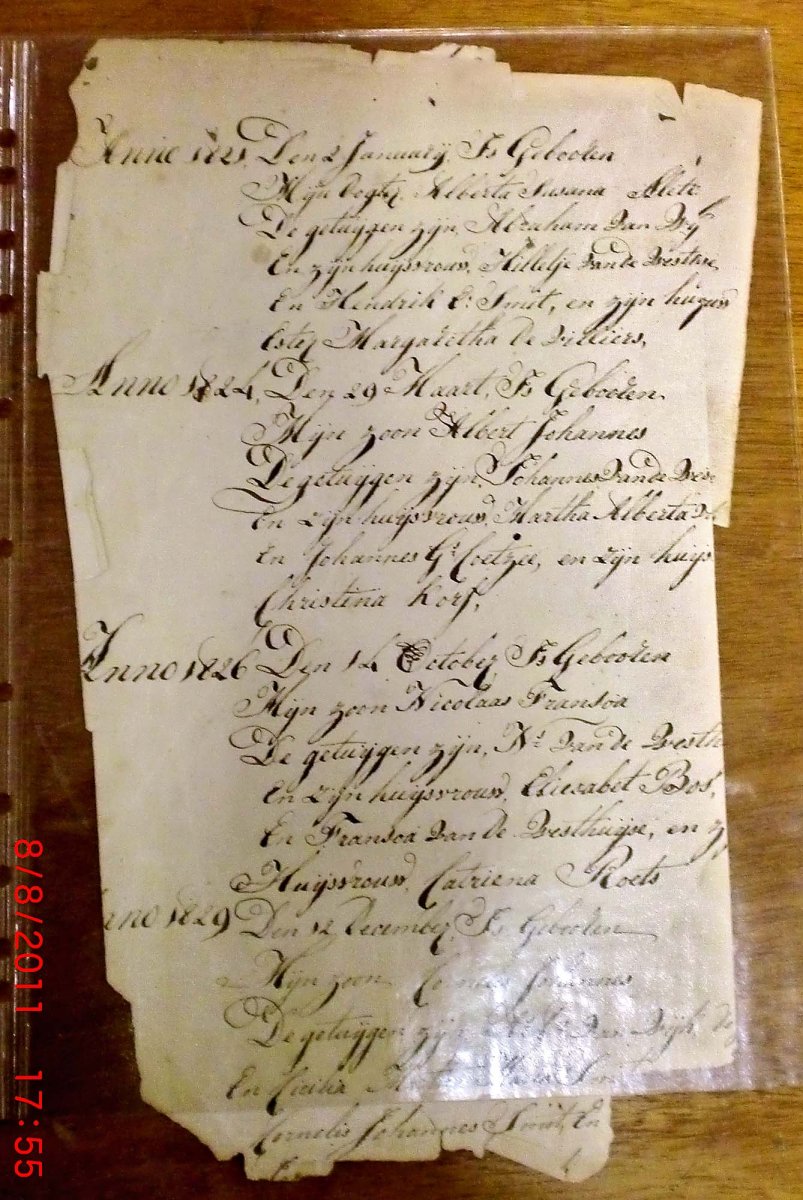 Anno 1821, Den 2 January, Is Gebooren
Mijn dogter Alberta Susana Alet
De getuijgen zijn, Abraham Van Wyk
En zijn huijsvrouw, Hilletje van de Westhuse
En Hendrik C: Smit, en zijn huijsv
Ester Margaretha de Villiers,
Anno 1824, Den 29 Maart, Is Gebooren
Mijn zoon Albert Johannes
De getuijgen zijn, Johannes van de Wes
En zijn huijsvrouw, Martha Alberta
En Johannes Gs Coetzee, en zijn huijs
Christina Korf,
Anno 1826 Den 14 October Is Gebooren
Mijn zoon Nicolaas Fransoa
De getuijgen zijn, Ns Van de Westh
En zijn huijsvrouw, Eliesabet Bos,
En Fransoa van de Westhuijse, en z
Huijsvrouw, Catriena Roets
nno 1829 Den 12 December, Is Gebooren
Mijn zoon Cornelis Johannes
De getuijgen zijn
En Cicilia Smi
Cornelis Johannes Smit, En
8/8/2011 17:55